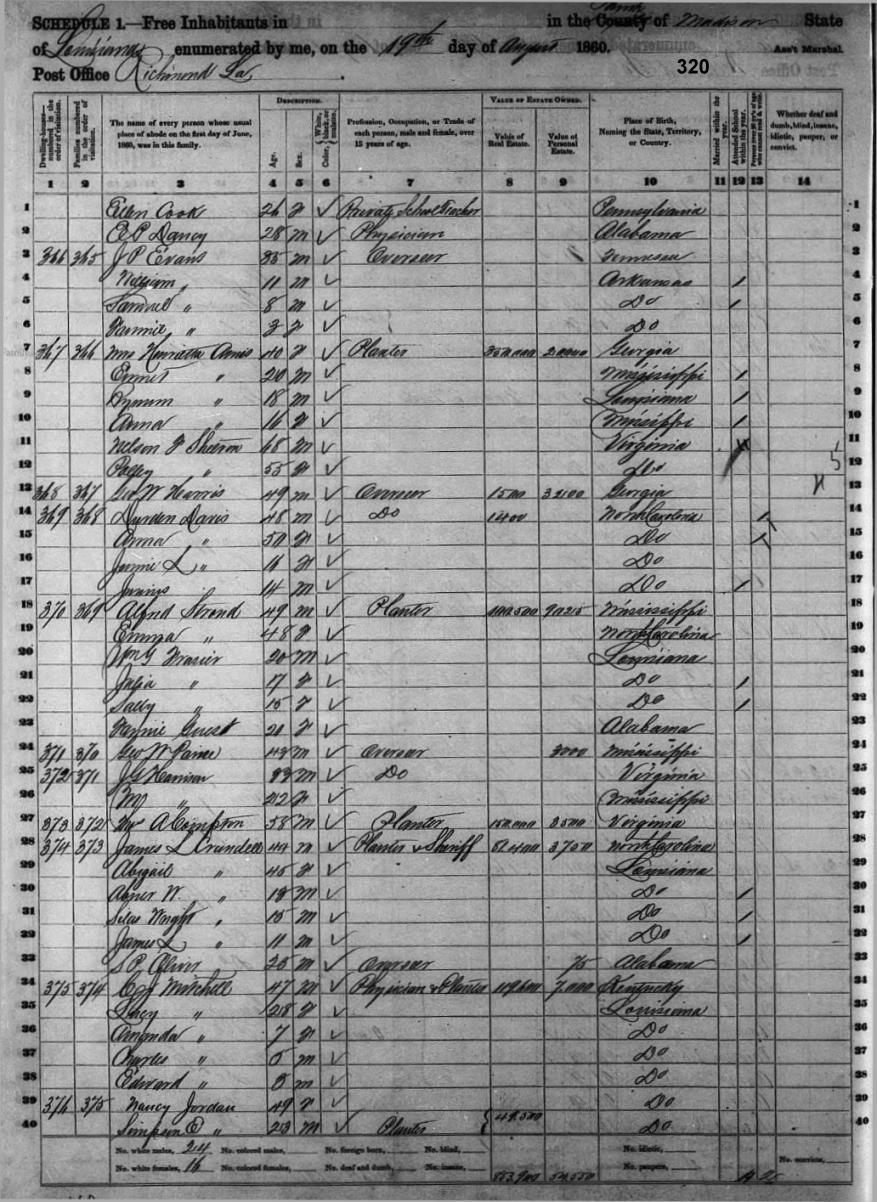 SCHEDULE 1.—Free Inhabitants in in the County of Madison State
of Louisiana enumerated by me, on the 19th day of August 1860. Ass't Marshal.
Post Office Richmond La. 320
DESCRIPTION. VALUE OF ESTATE OWNED.
Dwelling-houses—numbered in the order of visitation. Families numbered in the order of visitation. The name of every person whose usual place of abode on the first day of June, 1860, was in this family. Age. Sex. Color, White, black, or mulatto. Profession, Occupation, or Trade of each person, male and female, over 15 years of age. Value of Real Estate. Value of Personal Estate. Place of Birth, Naming the State, Territory, or Country. Married within the year. Attended School within the year. Persons over 20 y'rs of age who cannot read & write. Whether deaf and dumb, blind, insane, idiotic, pauper, or convict.
1 2 3 4 5 6 7 8 9 10 11 12 13 14
1 Ellen Cook 26 f ✓ Private School Teacher Pennsylvania 1
2 E P Dancy 28 m ✓ Physician Alabama 2
3 366 365 J P Evans 35 m ✓ Overseer Tennessee 3
4 William " 11 m ✓ Arkansas / 4
5 Samuel " 8 m ✓ Do / 5
6 Fannie " 3 f ✓ Do 6
7 367 366 Mrs Henrietta Amis 40 f ✓ Planter Georgia 7
8 Ernest " 20 m ✓ Mississippi / 8
9 " 18 m ✓ Louisiana / 9
10 Anna " 16 f ✓ Mississippi / 10
11 Nelson F 68 m ✓ Virginia 11
12 Polley " 55 f ✓ Do 12
13 368 367 Geo W Harris 49 m ✓ Overseer 1500 Georgia 13
14 369 368 Davis 48 m ✓ Do 1400 North Carolina / 14
15 Anna " 50 f ✓ Do / 15
16 Jennie L " 16 f ✓ Do 16
17 14 m ✓ Do / 17
18 370 369 Alfred 49 m ✓ Planter 100,500 90215 Mississippi 18
19 Emma " 48 f ✓ North Carolina 19
20 Wm G Frasier 20 m ✓ Louisiana 20
21 Julia " 17 f ✓ Do / 21
22 Sally " 15 f ✓ Do / 22
23 Guest 20 f ✓ Alabama 23
24 371 370 Geo W 43 m ✓ Overseer 3000 Mississippi 24
25 372 371 J G Harrison 33 m ✓ Do Virginia 25
26 " 22 f ✓ Mississippi 26
27 373 372 A Compton 58 m ✓ Planter 150,000 3500 Virginia 27
28 374 373 James L Crandell 44 m ✓ Planter & Sheriff 3750 North Carolina 28
29 Abigail " 45 f ✓ Louisiana 29
30 Abner W. " 18 m ✓ Do / 30
31 Silas Wright " 15 m ✓ Do / 31
32 James L " 11 m ✓ Do / 32
33 S P Oliver 25 m ✓ Overseer 75 Alabama 33
34 375 374 Mitchell 47 m ✓ Physician & Planter 119,600 7,000 Kentucky 34
35 Lucy " 28 f ✓ Louisiana 35
36 Amanda " 7 f ✓ Do 36
37 Charles " 5 m ✓ Do 37
38 Edward " 3 m ✓ Do 38
39 376 375 Nancy Jordan 49 f ✓ Do 39
40 Simpson " 23 m ✓ Planter 49,500 Do 40
No. white males, 24 No. colored males, No. foreign born, No. blind, No. idiotic, No. convicts,
No. white females, 16 No. colored females, No. deaf and dumb, No. insane, No. paupers,